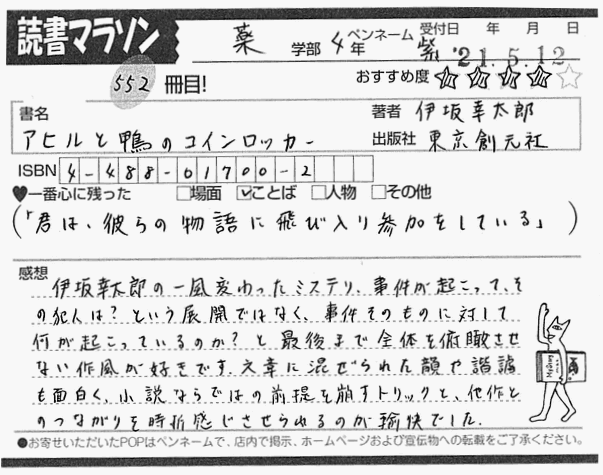 読書マラソン
薬 学部 4年 ペンネーム 紫 受付日 年 月 日
'21.5.12
552 冊目! おすすめ度 ★★★★☆
書名 著者 伊坂幸太郎
アヒルと鴨のコインロッカー 出版社 東京創元社
ISBN 4-488-01700-2
♥一番心に残った □場面 ☑ことば □人物 □その他
(「君は、彼らの物語に飛び入り参加をしている」)
感想
伊坂幸太郎の一風変わったミステリ、事件が起こって、そ
の犯人は?という展開ではなく、事件そのものに対して
何が起こっているのか?と最後まで全体を俯瞰させ
ない作風が好きです。文章に混ぜられた韻や諧謔
も面白く、小説ならではの前提を崩すトリックと、他作と
のつながりを時折感じさせられるのが愉快でした.
●お寄せいただいたPOPはペンネームで、店内で掲示、ホームページおよび宣伝物への転載をご了承ください。